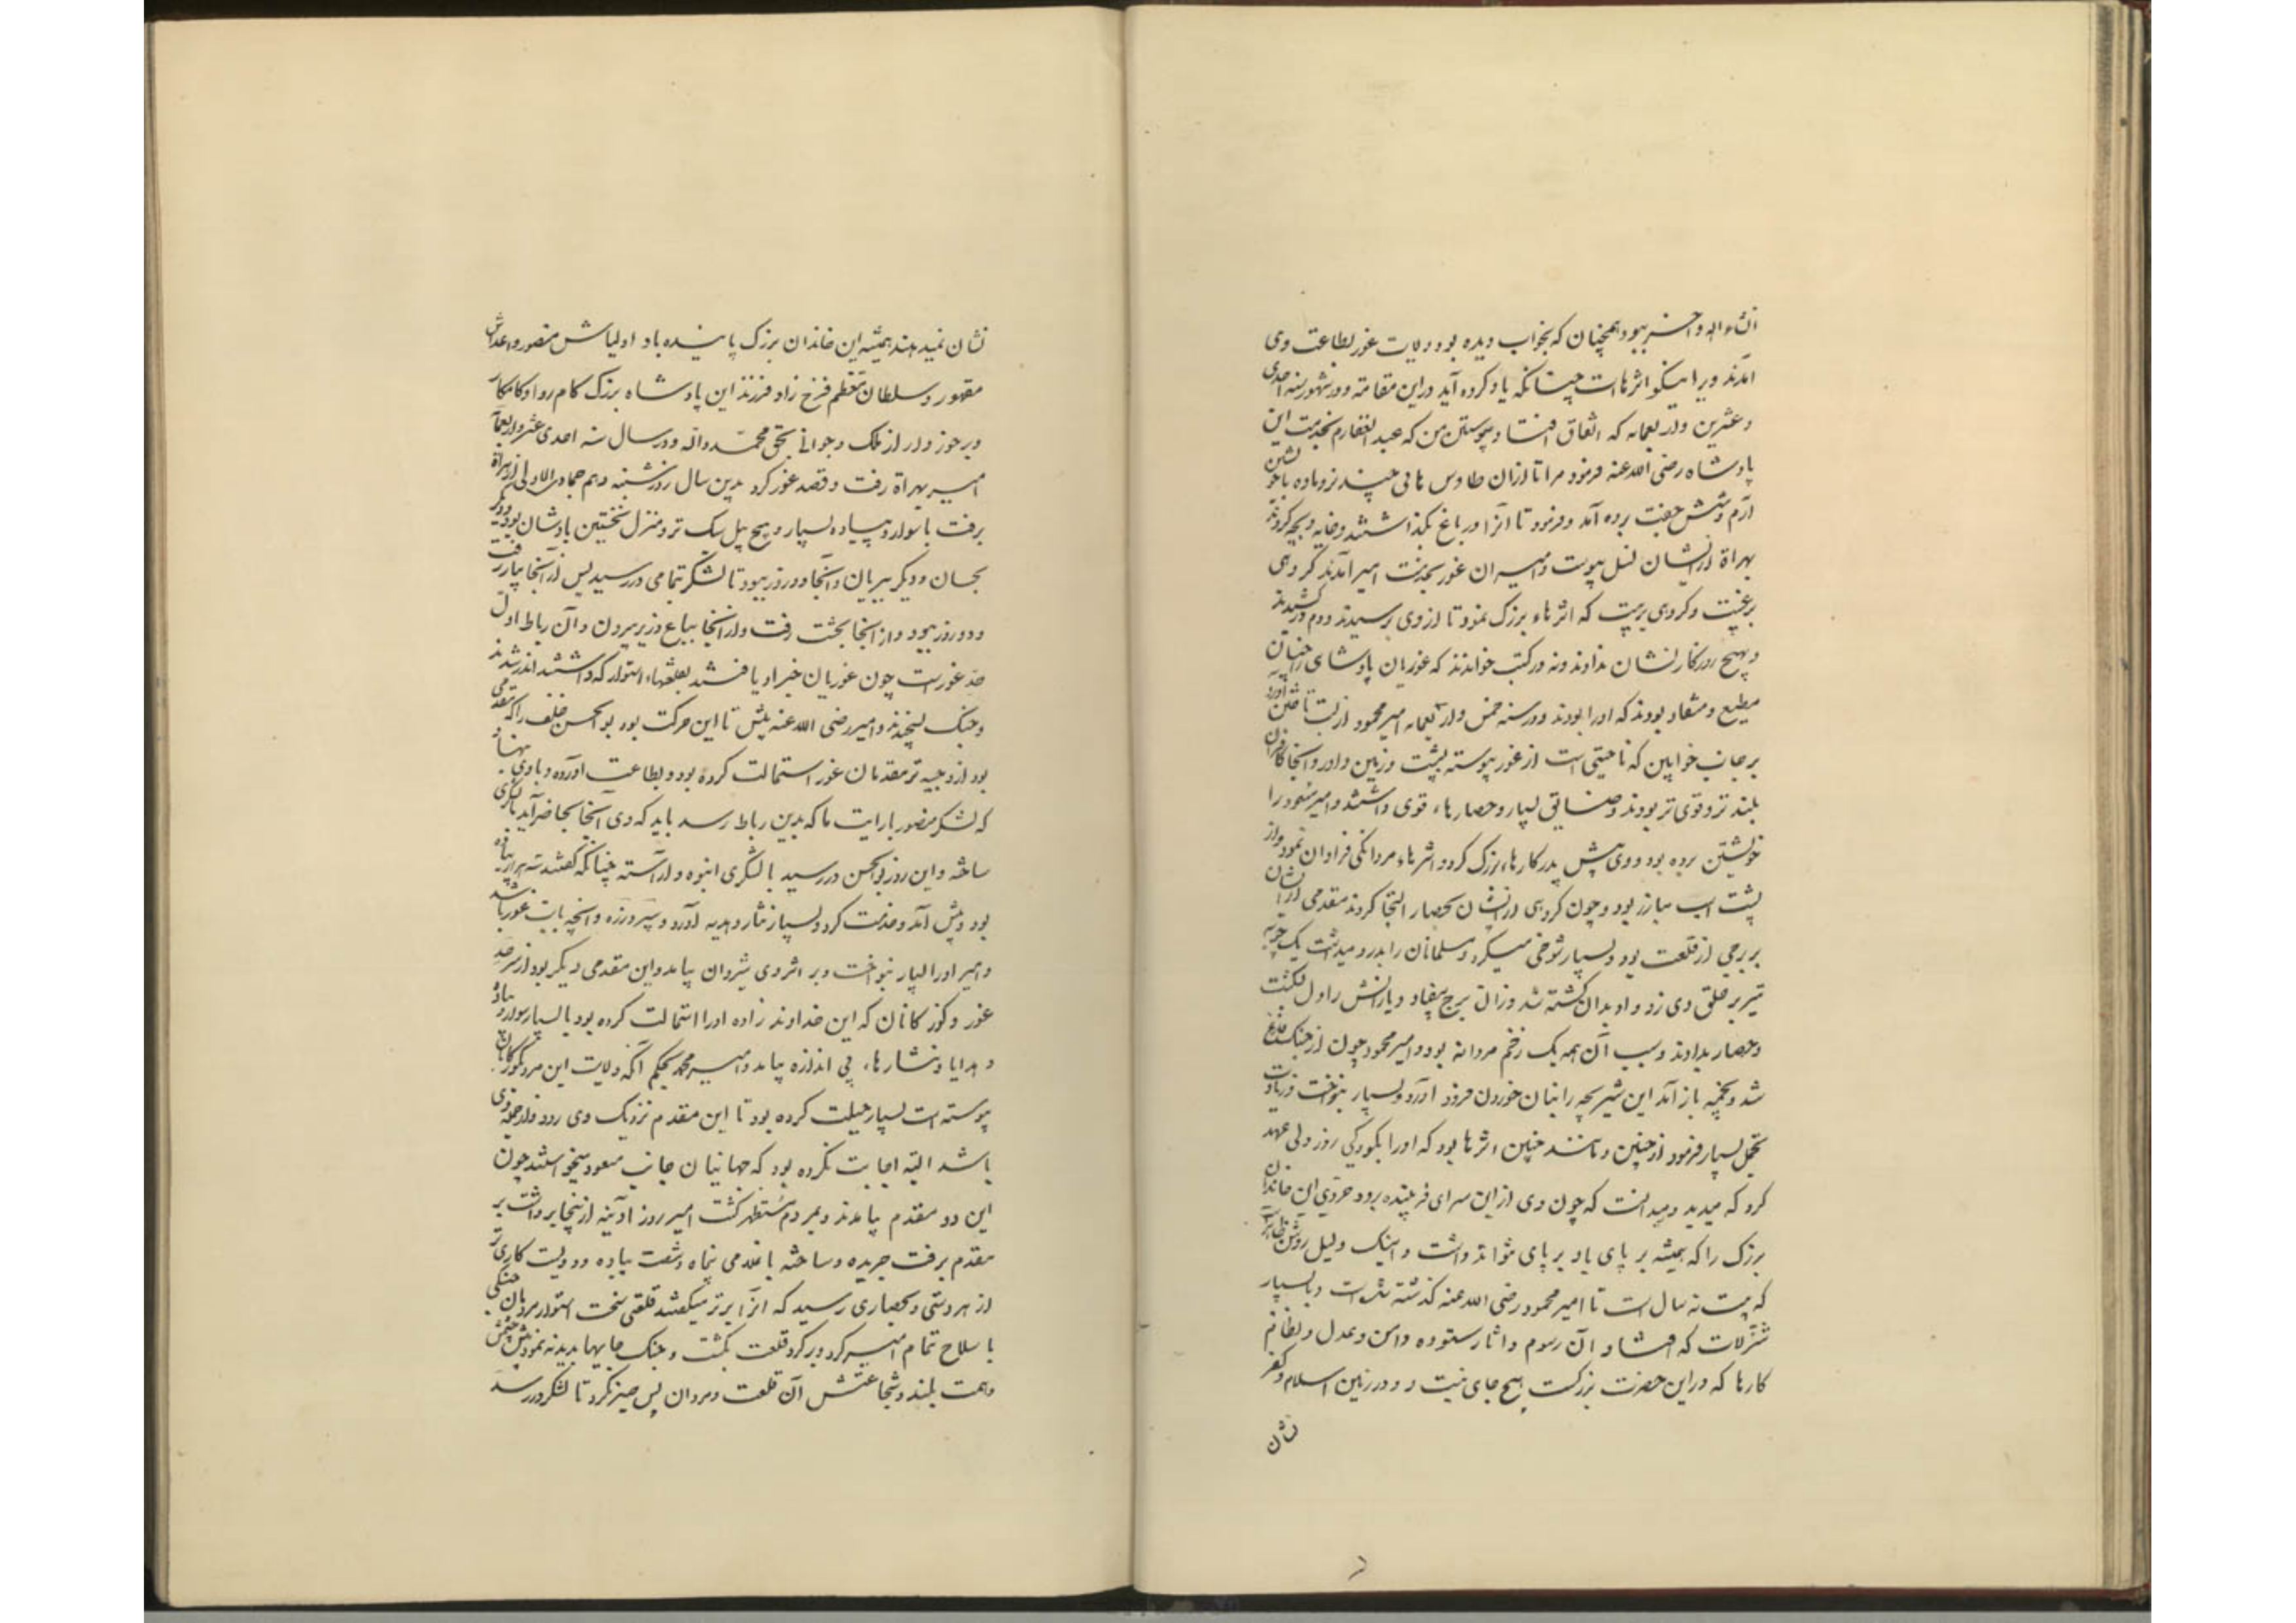 انشاءالله و آخر ببود همچنان که بخواب دیده بود و ولایت غور بطاعت وی
آمدند ویرا نیکو اثرهاست چنانکه یاد کرده آید دراین مقامه و در شهور سنه احدی
و عشرین و اربعمایه که اتفاق افتاد و پیوستن من که عبدالغفارم بخدمت این
پادشاه رضی الله عنه فرمود مرا تا ازان طاوس هائی چند نر و ماده با خویشتن
آرم و شش جفت برده آمد و فرمود تا آنرا در باغ بگذاشتند و خایه و بچه کردند
بهراة ازیشان نسل پیوست و امیران غور بخدمت امیر آمدند گروهی
برغبت و گروهی برهبت که اثرهاء بزرگ نمود تا از وی بترسیدند و دم درکشیدند
و بهیچ روزگار نشان ندادند و نه در کتب خواندند که غوریان پادشاهی را چنان
مطیع و منقاد بودند که او را بودند و در سنه خمس و اربعمایه امیر محمود از بست تاختن آورد
بر جانب خوابین که ناحیتی است از غور پیوسته ببست و زمین داور و آنجا کافران
بلندتر و قوی تر بودند و مضایق بسیار و حصارهاء قوی داشتند و امیر مسعود را
خویشتن برده بود و وی پیش پدر کارهاء بزرگ کرد و اثرهاء مردانگی فراوان نمود و از
پشت اسب مبارز بود و چون گروهی ازیشان بحصار التجا کردند مقدمی ازیشان
بر برجی از قلعت بود و بسیار شوخی میکرد و مسلمانان را بدرد میداشت یک چوبه
تیر بر حلق وی زد و او بدان کشته شد و زان برج بیفتاد و یارانش را دل بشکست
و حصار بدادند و سبب آن همه یک زخم مردانه بود و امیر محمود چون از جنگ فارغ
شد و بخیمه باز آمد این شیر بچه را بنان خوردن فرود آورد و بسیار بنواخت و زیادت
تجمل بسیار فرمود از چنین و مانند چنین اثرها بود که او را بکودکی روز ولی عهد
کرد که میدید و میدانست که چون وی ازاین سرای فریبنده برود جز وی این خاندان
بزرگ را که همیشه بر پای باد بر پای نتواند داشت و اینک دلیل روشن ظاهرست
که بیست نه سال است تا امیر محمود رضی الله عنه گذشته شدست و با بسیار
تنزلات که افتاد آن رسوم و آثار ستوده و امن و عدل و نظام
کارها که دراین حضرت بزرگست هیچ جای نیست و در زمین اسلام و کفر
نشان
نشان نمیدهند همیشه این خاندان بزرگ پاینده باد اولیاش منصور و اعداش
مقهور و سلطان معظم فرخ زاد فرزند این پادشاه بزرگ کام روا و کامکار
و برخوردار از ملک و جوانی بحق محمد و آله و در سال سنه احدی عشر و اربعمایه
امیر بهراة رفت و قصد غور کرد بدین سال روز شنبه دهم جمادی الاولی از هراة
برفت با سوار و پیاده بسیار و پنج پیل سبک تر و منزل نخستین باوشان بود و دیگر
بحسان و دیگر ببریان و آنجا دو روز ببود تا لشکر تمامی در رسید پس از آنجا بپار رفت
و دو روز ببود و از آنجا بخشت رفت و از آنجا بباغ وزیر بیرون و آن رباط اول
حد غورست چون غوریان خبر او یافتند بقلعتهاء استوار که داشتند اندر شدند
و جنگ بسیجیدند و امیر رضی الله عنه پیش تا این حرکت بود بوالحسن خلف را که مقدمی
بود از وجیه تر مقدمان غور استمالت کرده بود و بطاعت آورده و با وی بنهاده
که لشکر منصور با رایت ما که بدین رباط رسد باید که وی آنجا حاضر آید با لشکری
ساخته و این روز بوالحسن در رسید با لشکری انبوه و آراسته چنانکه گفتند سه هزار پیاده
بود و پیش آمد و خدمت کرد و بسیار نثار و هدیه آورد و سپر و زره و آنچه بابت غور باشد
و امیر او را بسیار بنواخت و بر اثر وی شیروان بیامد و این مقدمی دیگر بود از سرحد
غور و گوزکانان که این خداوند زاده او را استمالت کرده بود با بسیار سوار و پیاده
و هدایا و نثارهاء بی اندازه بیامد و امیر محمد بحکم آنکه ولایت این مرد بگوزکانان
پیوسته است بسیار حیلت کرده بود تا این مقدم نزدیک وی رود و از جمله وی
باشد البته اجابت نکرده بود که جهانیان جانب مسعود میخواستند چون
این دو مقدم بیامدند و بمردم مستظهر گشت امیر روز آدینه از اینجا برداشت بر
مقدم برفت جریده و ساخته با غلامی پنجاه و شصت پیاده دو دویست کاری تر
از هر دستی و بحصاری رسید که آنرا برتر میگفتند قلعتی سخت استوار مردان جنگی
با سلاح تمام امیر کرد بر گرد قلعت بگشت و جنگ جایها بدید نه نمود پیش چشمش
و همت بلند و شجاعتش آن قلعت و مردان پس صبر نکرد تا لشکر در رسد